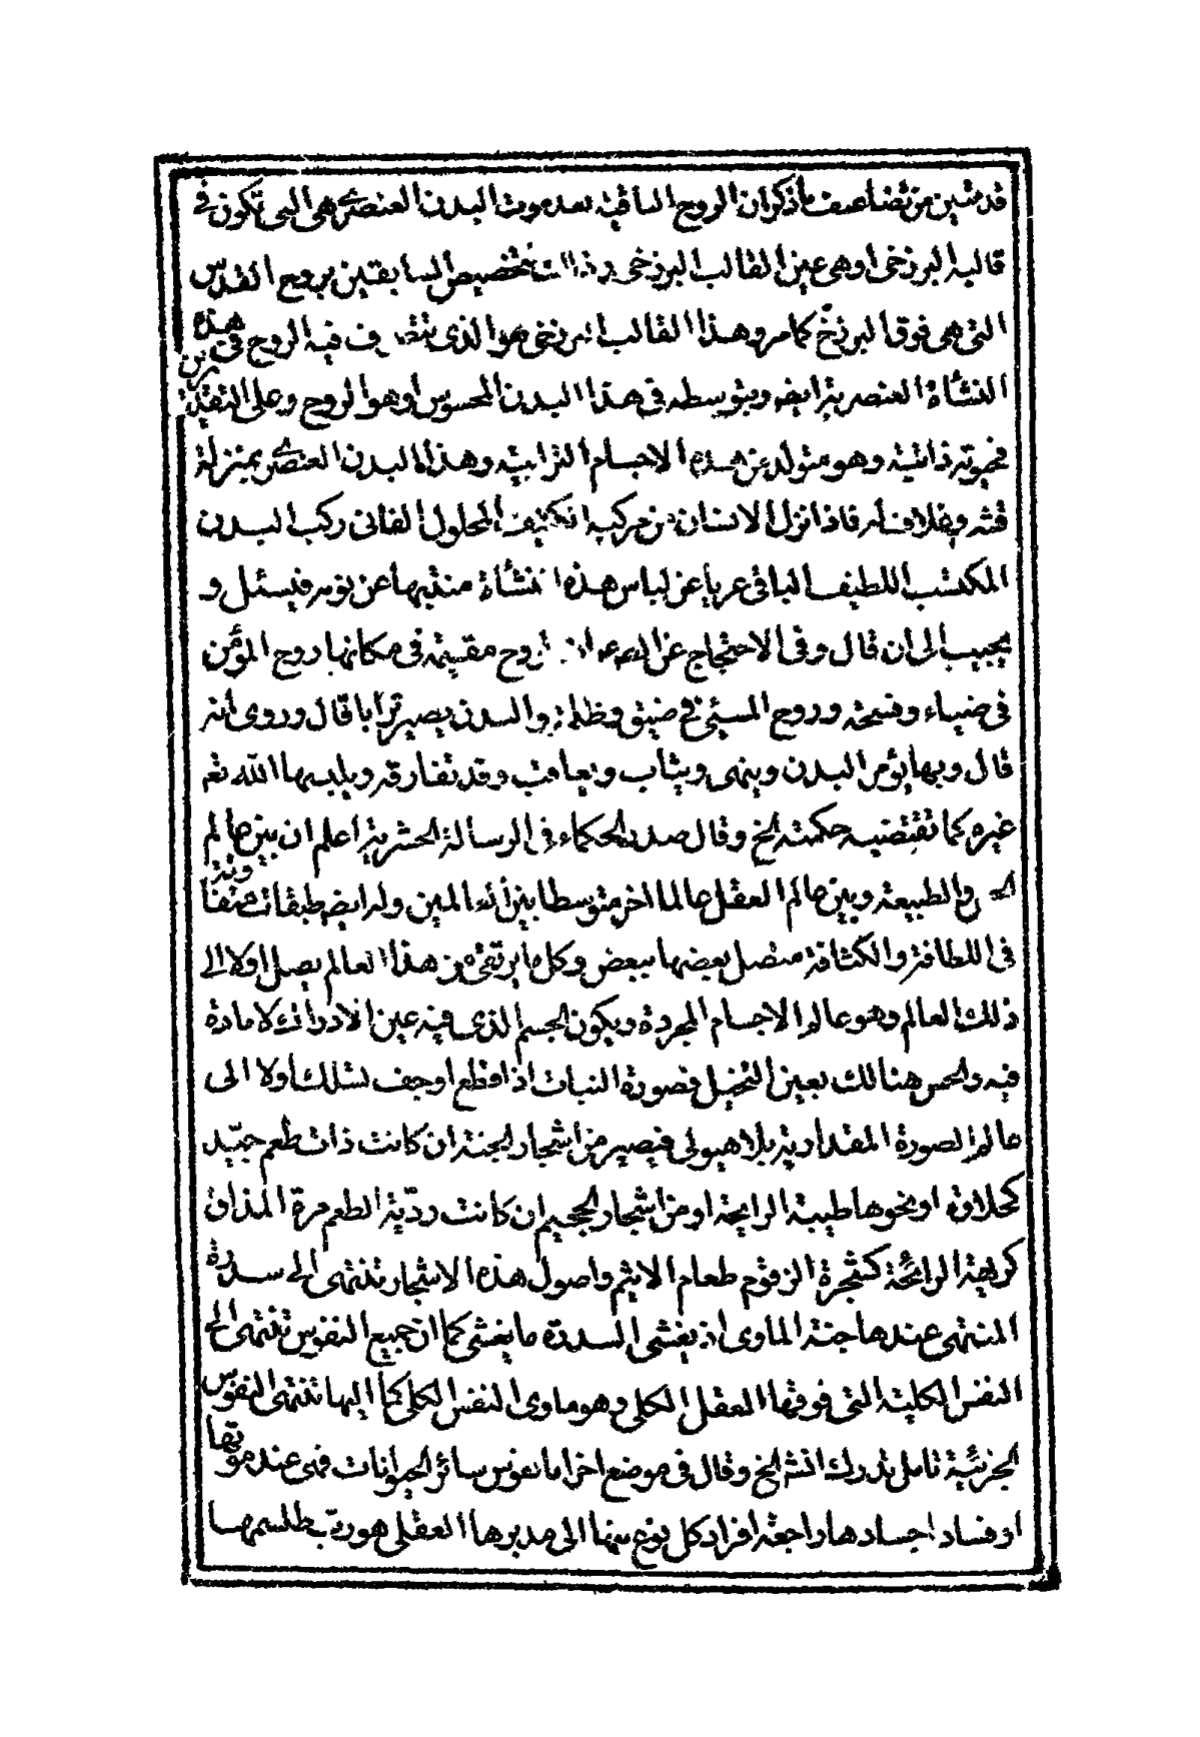 قد تبين من تضاعيف ما ذكر ان الروح الباقية بعد موت البدن العنصرى هى التى تكون فى
قالبه البرزخى او هى عين القالب البرزخى تخصيص السابقين بروح القدس
التى هى فوق البرزخ كما مر وهذا القالب البرزخى هو الذى يتصرف فيه الروح فى هذه
النشأة العنصرية ايضه وبتوسطه فى هذا البدن المحسوس او هو الروح وعلى التقديرين
فحيوته ذاتية وهو متولد عن هذه الاجسام الترابية وهذا البدن العنصرى بمنزلة
قشر وغلاف له فاذا نزل الانسان من مركبه الكثيف المحلول الفانى ركب البدن
المكتسب اللطيف الباقى عريا عن لباس هذه النشأة منتبها عن نومه فيسئل و
يجيب الى ان قال وفى الاحتجاج عن الروح مقيمة فى مكانها روح المؤمن
فى ضياء وفسحة وروح المسيئ فى ضيق وظلمة والبدن يصير ترابا قال وروى انه
قال وبها يؤمر البدن وينهى ويثاب ويعاقب وقد تفارقه ويلبسها الله تع
غيره كما تقتضيه حكمته الخ وقال صدر الحكماء فى الرسالة الحشرية اعلم ان بين عالم
والطبيعة وبين عالم العقل عالما اخر متوسطا بين العالمين وله ايضه طبقات متفاوتة
فى اللطافة والكثافة متصل بعضها ببعض وكل ما يرتقى من هذا العالم يصل اولا الى
ذلك العالم وهو عالم الاجسام المجردة ويكون الجسم الذى فيه عين الادراك لا مادة
فيه والحس هنالك بعين التخيل فصورة النبات اذا قطع او جف تسلك اولا الى
عالم الصورة المقدارية بلا هيولى فيصير من اشجار الجنة ان كانت ذات طعم جيّد
كحلاوة او نحوها طيبة الرايحة او من اشجار الجحيم ان كانت رديّة الطعم مرة المذاق
كريهة الرائحة كشجرة الزقوم طعام الاثيم واصول هذه الاشجار تنتهى الى سدرة
المنتهى عندها جنة الماوى اذ يغشى السدرة ما يغشى كما ان جميع النفوس تنتهى الى
النفس الكلية التى فوقها العقل الكلى وهو ماوى النفس الكلى كما اليها تنتهى النفوس
الجزئية تامل تدرك انشه الخ وقال فى موضع اخر اما نفوس سائر الحيوانات فهى عند موتها
او فساد اجسادها راجعة افراد كل نوع منها الى مدبرها العقلى هو ربّ طلسمها